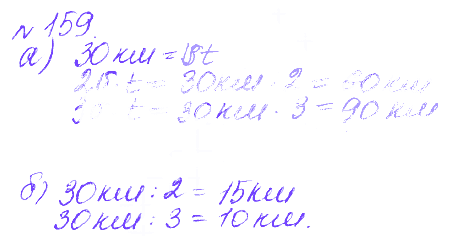 № 159.
а) 30км = 15t
2t = 30км · 2 = 60км
3t = 30км · 3 = 90км
б) 30км : 2 = 15км
30км : 3 = 10км.